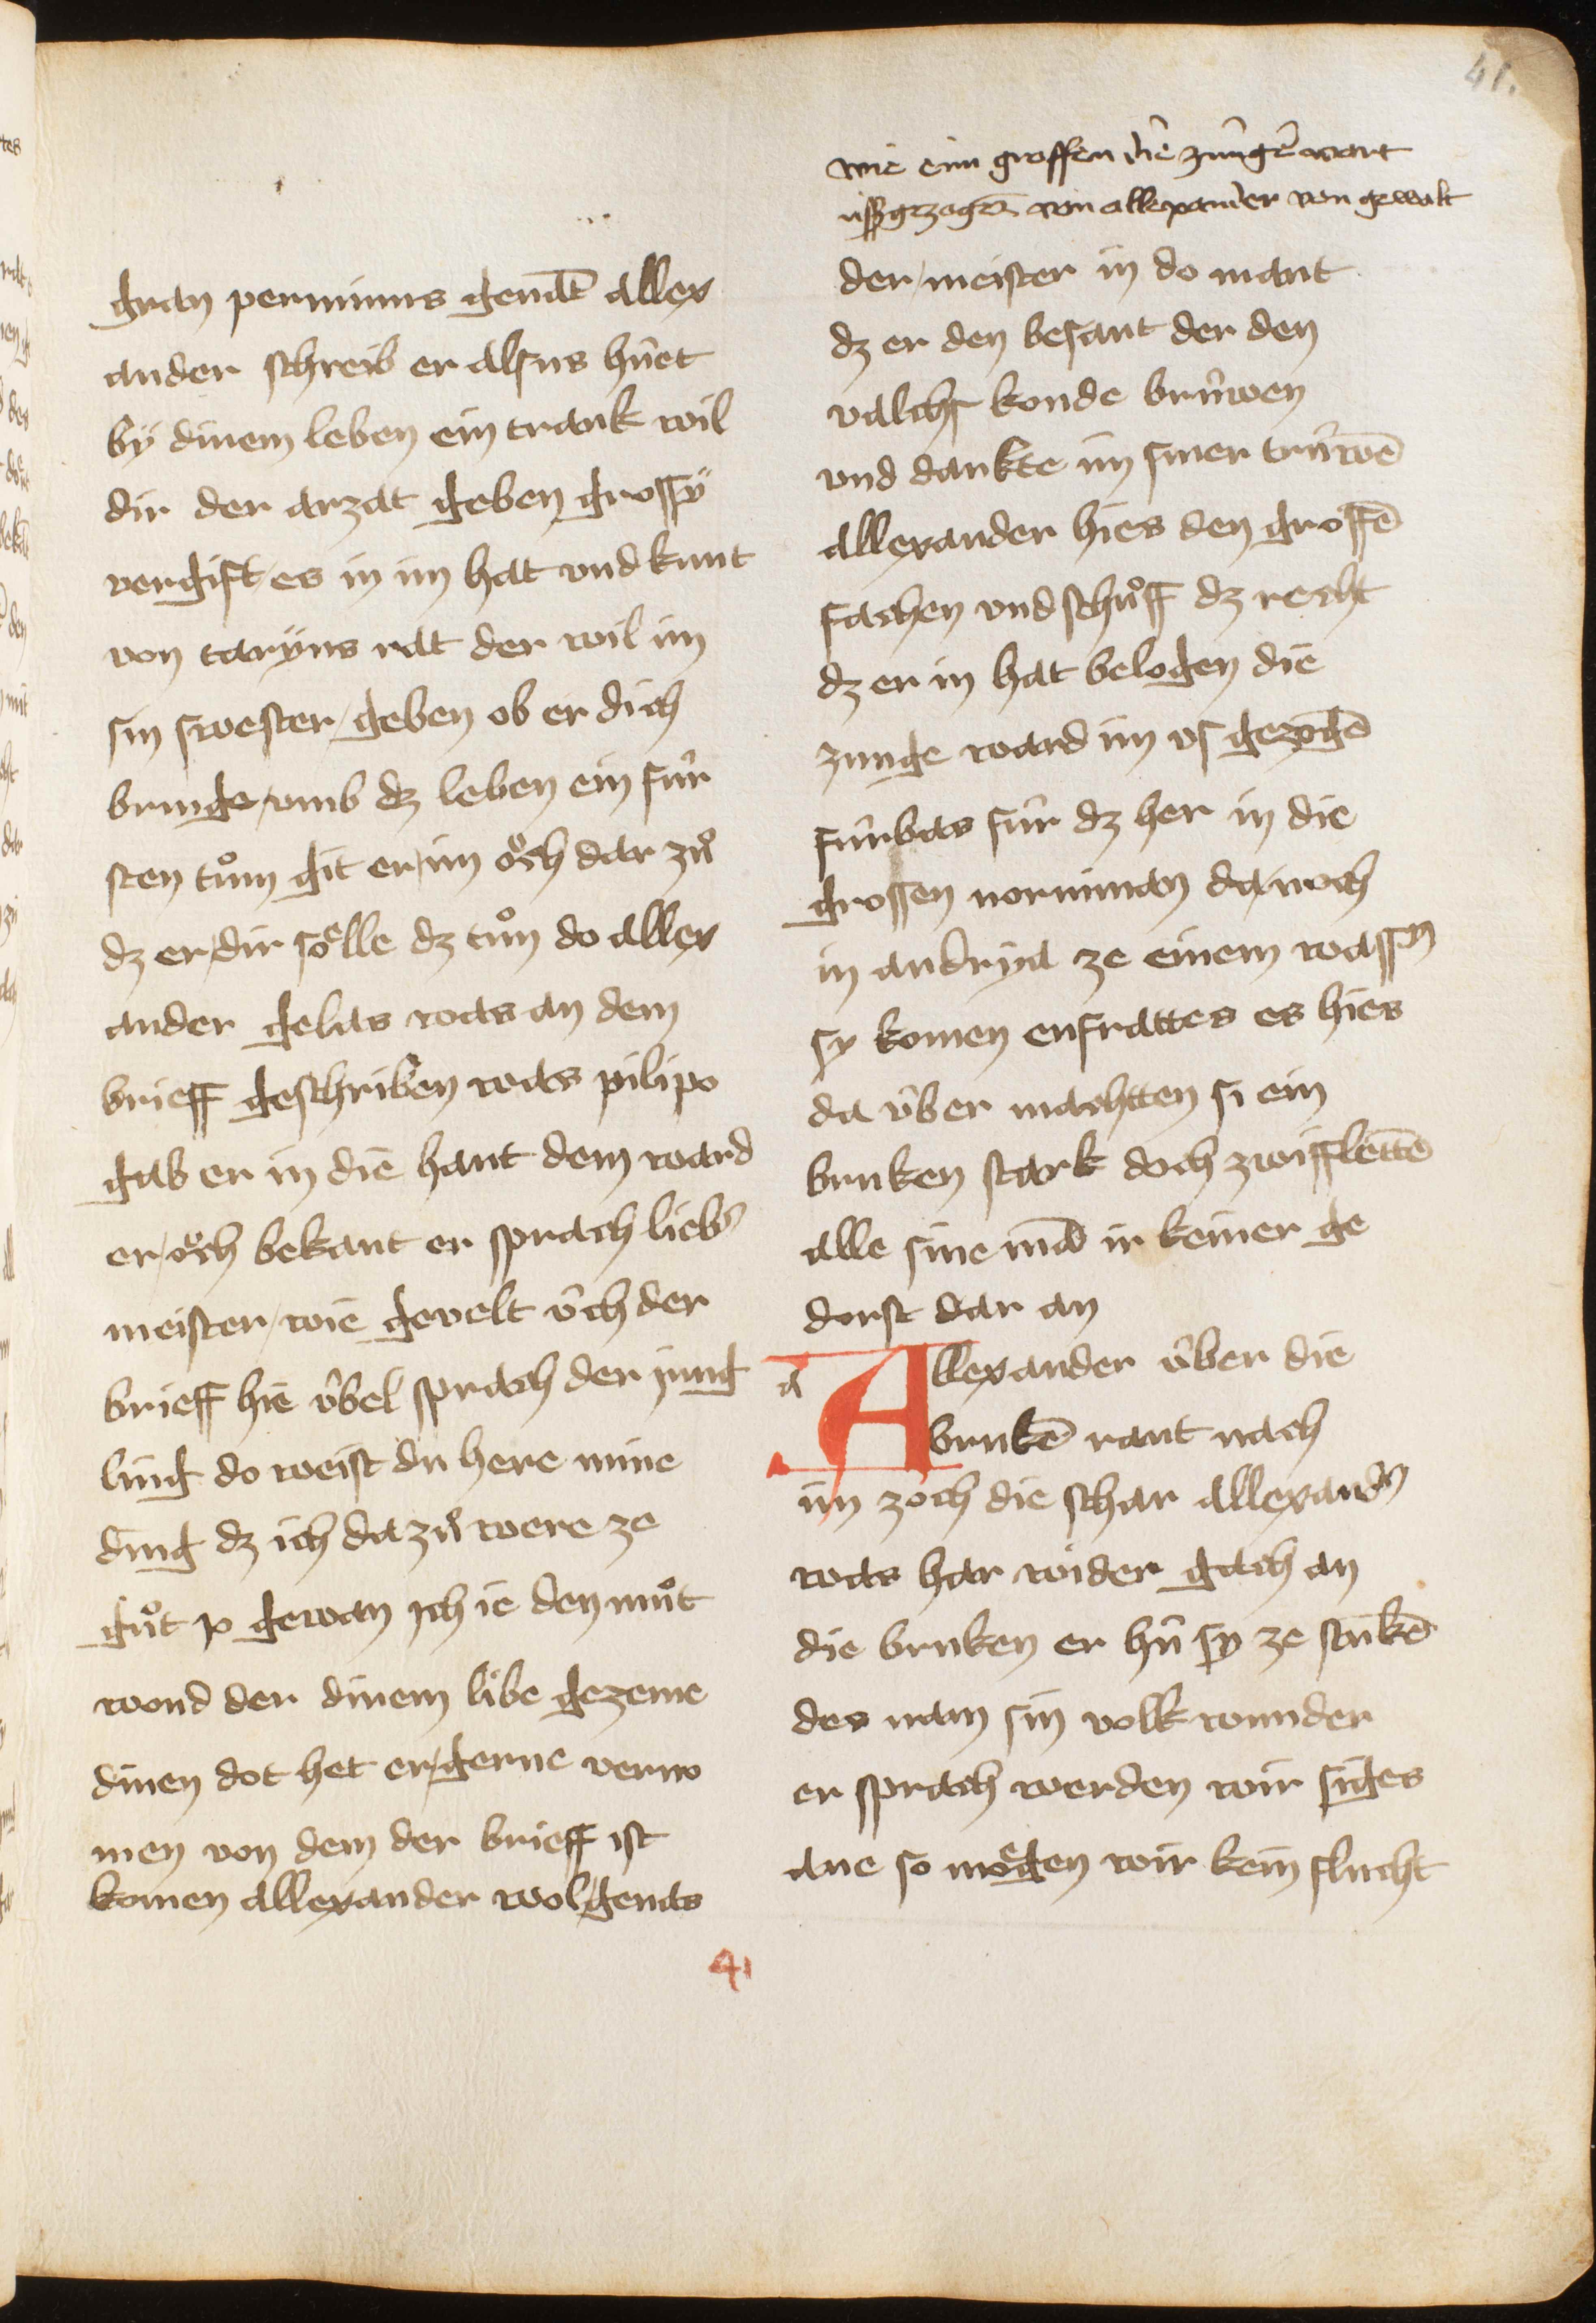 41.
gran perminus genāt allex
ander schreib er alsus huͤet
bÿ dinem leben ein trank wil
dir der arzat geben grossÿ
vergift es in im hat vnd kunt
von tarÿus rat der wil im
sin swester geben ob er dich
bringe vmb dz leben ein fúr
sten tům git er im oͮch dar zů
dz er dir soͤlle dz tůn do allex
ander gelas was an dem
brieff geschriben was pilipo
gab er in die hant dem ward
er oͮch bekant er sprach lieb̕
meister wie gevelt v́ch der
brieff hie v́bel sprach der jung
ling do weist du here mine
ding dz ich da zů were ze
gůt jo gewan ich ie den můt
wond der dinem libe gezeme
dinen dot het er gerne verno
men von dem der brieff ist
komen allexander wol genas
wie eim grossen die zungē wart
ússgezogen von allexander von gewalt
der meister in do mant
dz er den besant der den
valchs konde brúwen
vnd dankte im siner trúwē
allexander hies den grossē
fachen vnd schůff dz recht
dz er in hat belogen die
zunge ward im vs gezogē
fúrbas fúr dz her in die
grossen norniman da noch
in andrÿa ze einem wass̕n
sy komen eufrattes es hies
da v́ber machtten si ein
bruken stark doch zwiffletē
alle sine mā ir keiner ge
dorst dar an
a
Allexander v́ber die
brukē rant nach
im zoch die schar allexand̕
was har wider gach an
die bruken er hú sy ze stukē
des nam sin volk wunder
er sprach werden wir siges
ane so moͤgen wir kein flucht
41